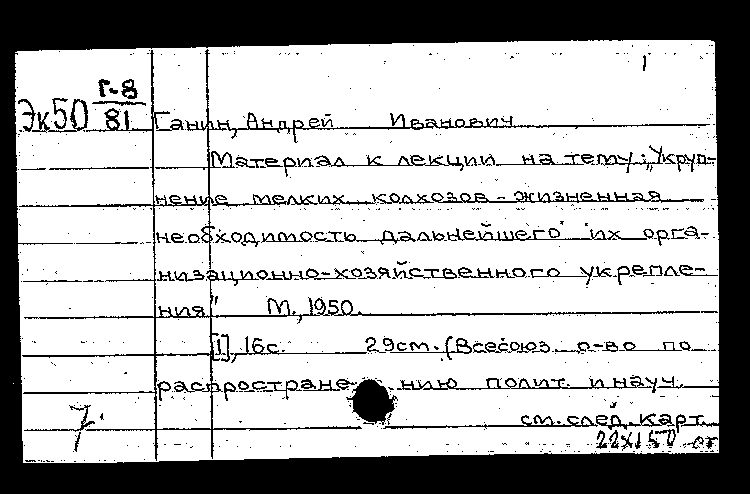 1
Эк50 Г-8
81 Ганин, Андрей Иванович
Материал к лекции на тему: „Укруп-
нение мелких колхозов - жизненная
необходимость дальнейшего их орга-
низационно-хозяйственного укрепле-
ния" М., 1950.
[1], 16с. 29см. (Всесоюз. о-во по
распростране- нию полит. и науч.
см. след. карт.
7.
22х150 от